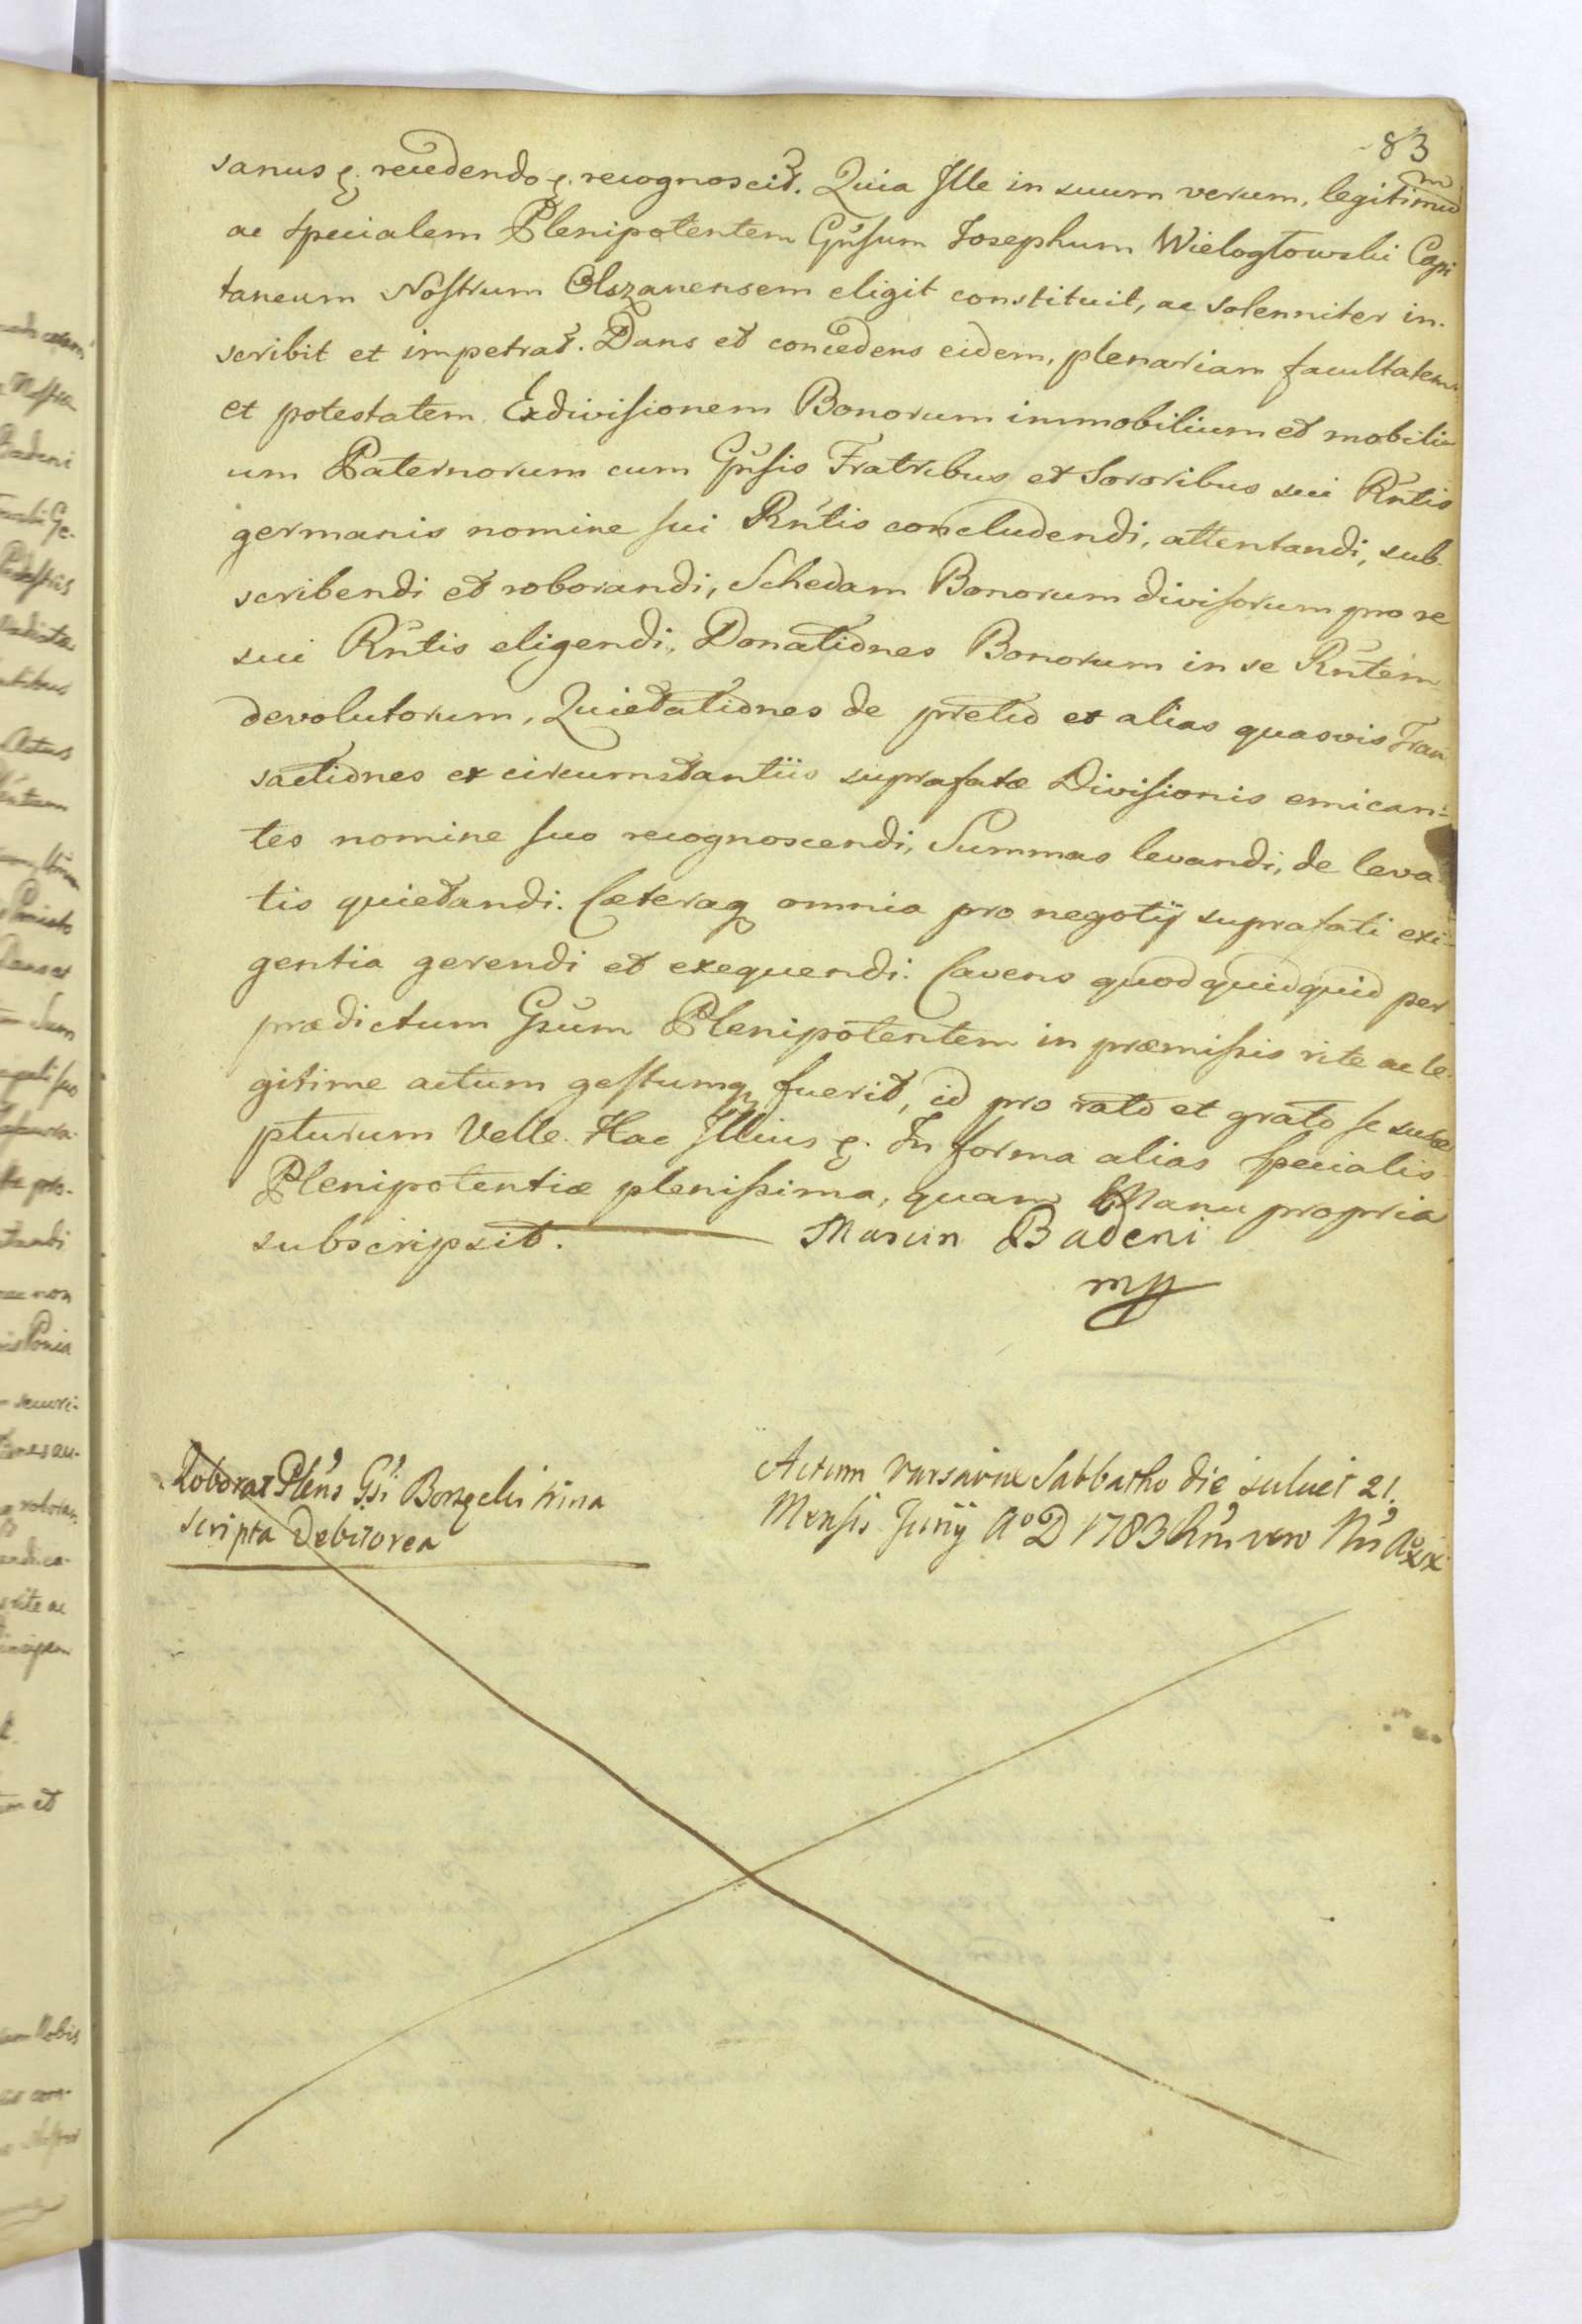 83
sanus ę. recedendo ę. recognoscit. Quia Ille in suum verum, legitimum
ac specialem Plenipotentem Gnsum Josephum Wielogłowski Capi
taneum Nostrum Olszanensem eligit constituit, ac solenniter in-
scribit et impetrat. Dans et concedens eidem, plenariam facultatem
et potestatem Exdivisionem Bonorum immobilium et mobili
um Paternorum cum Gnsis Fratribus et Sororibus sui Rntis
germanis nomine sui Rntis concludendi, attentandi, sub-
scribendi et roborandi, Schedam Bonorum divisorum pro se
sui Rntis eligendi, Donationes Bonorum in se Rntem
devolutorum, Quietationes de pretio et alias quasvis Tran
sactiones ex circumstantiis suprafatæ Divisionis emican-
tes nomine suo recognoscendi, Summas levandi, de leva
tis quietandi. Cæteraq omnia pro negotÿ suprafati exi-
gentia gerendi et exequendi. Cavens quod quidquid per
prædictum Gsum Plenipotentem in præmissis rite ac le-
gitime actum gestumq fuerit, id pro rato et grato se susce
pturum Velle. Hac Illius ę. In forma alias specialis
Plenipotentiæ plenissima, quam Manu propria
subscripsit. Marcin Badeni
mp
Roborat Plens Gsi Borzęcki
scripta Debitorea
Actum Varsaviæ Sabbatho die scilicet 21.
Mensis Junÿ A° D 1783 Rni vero Nri A° XIX